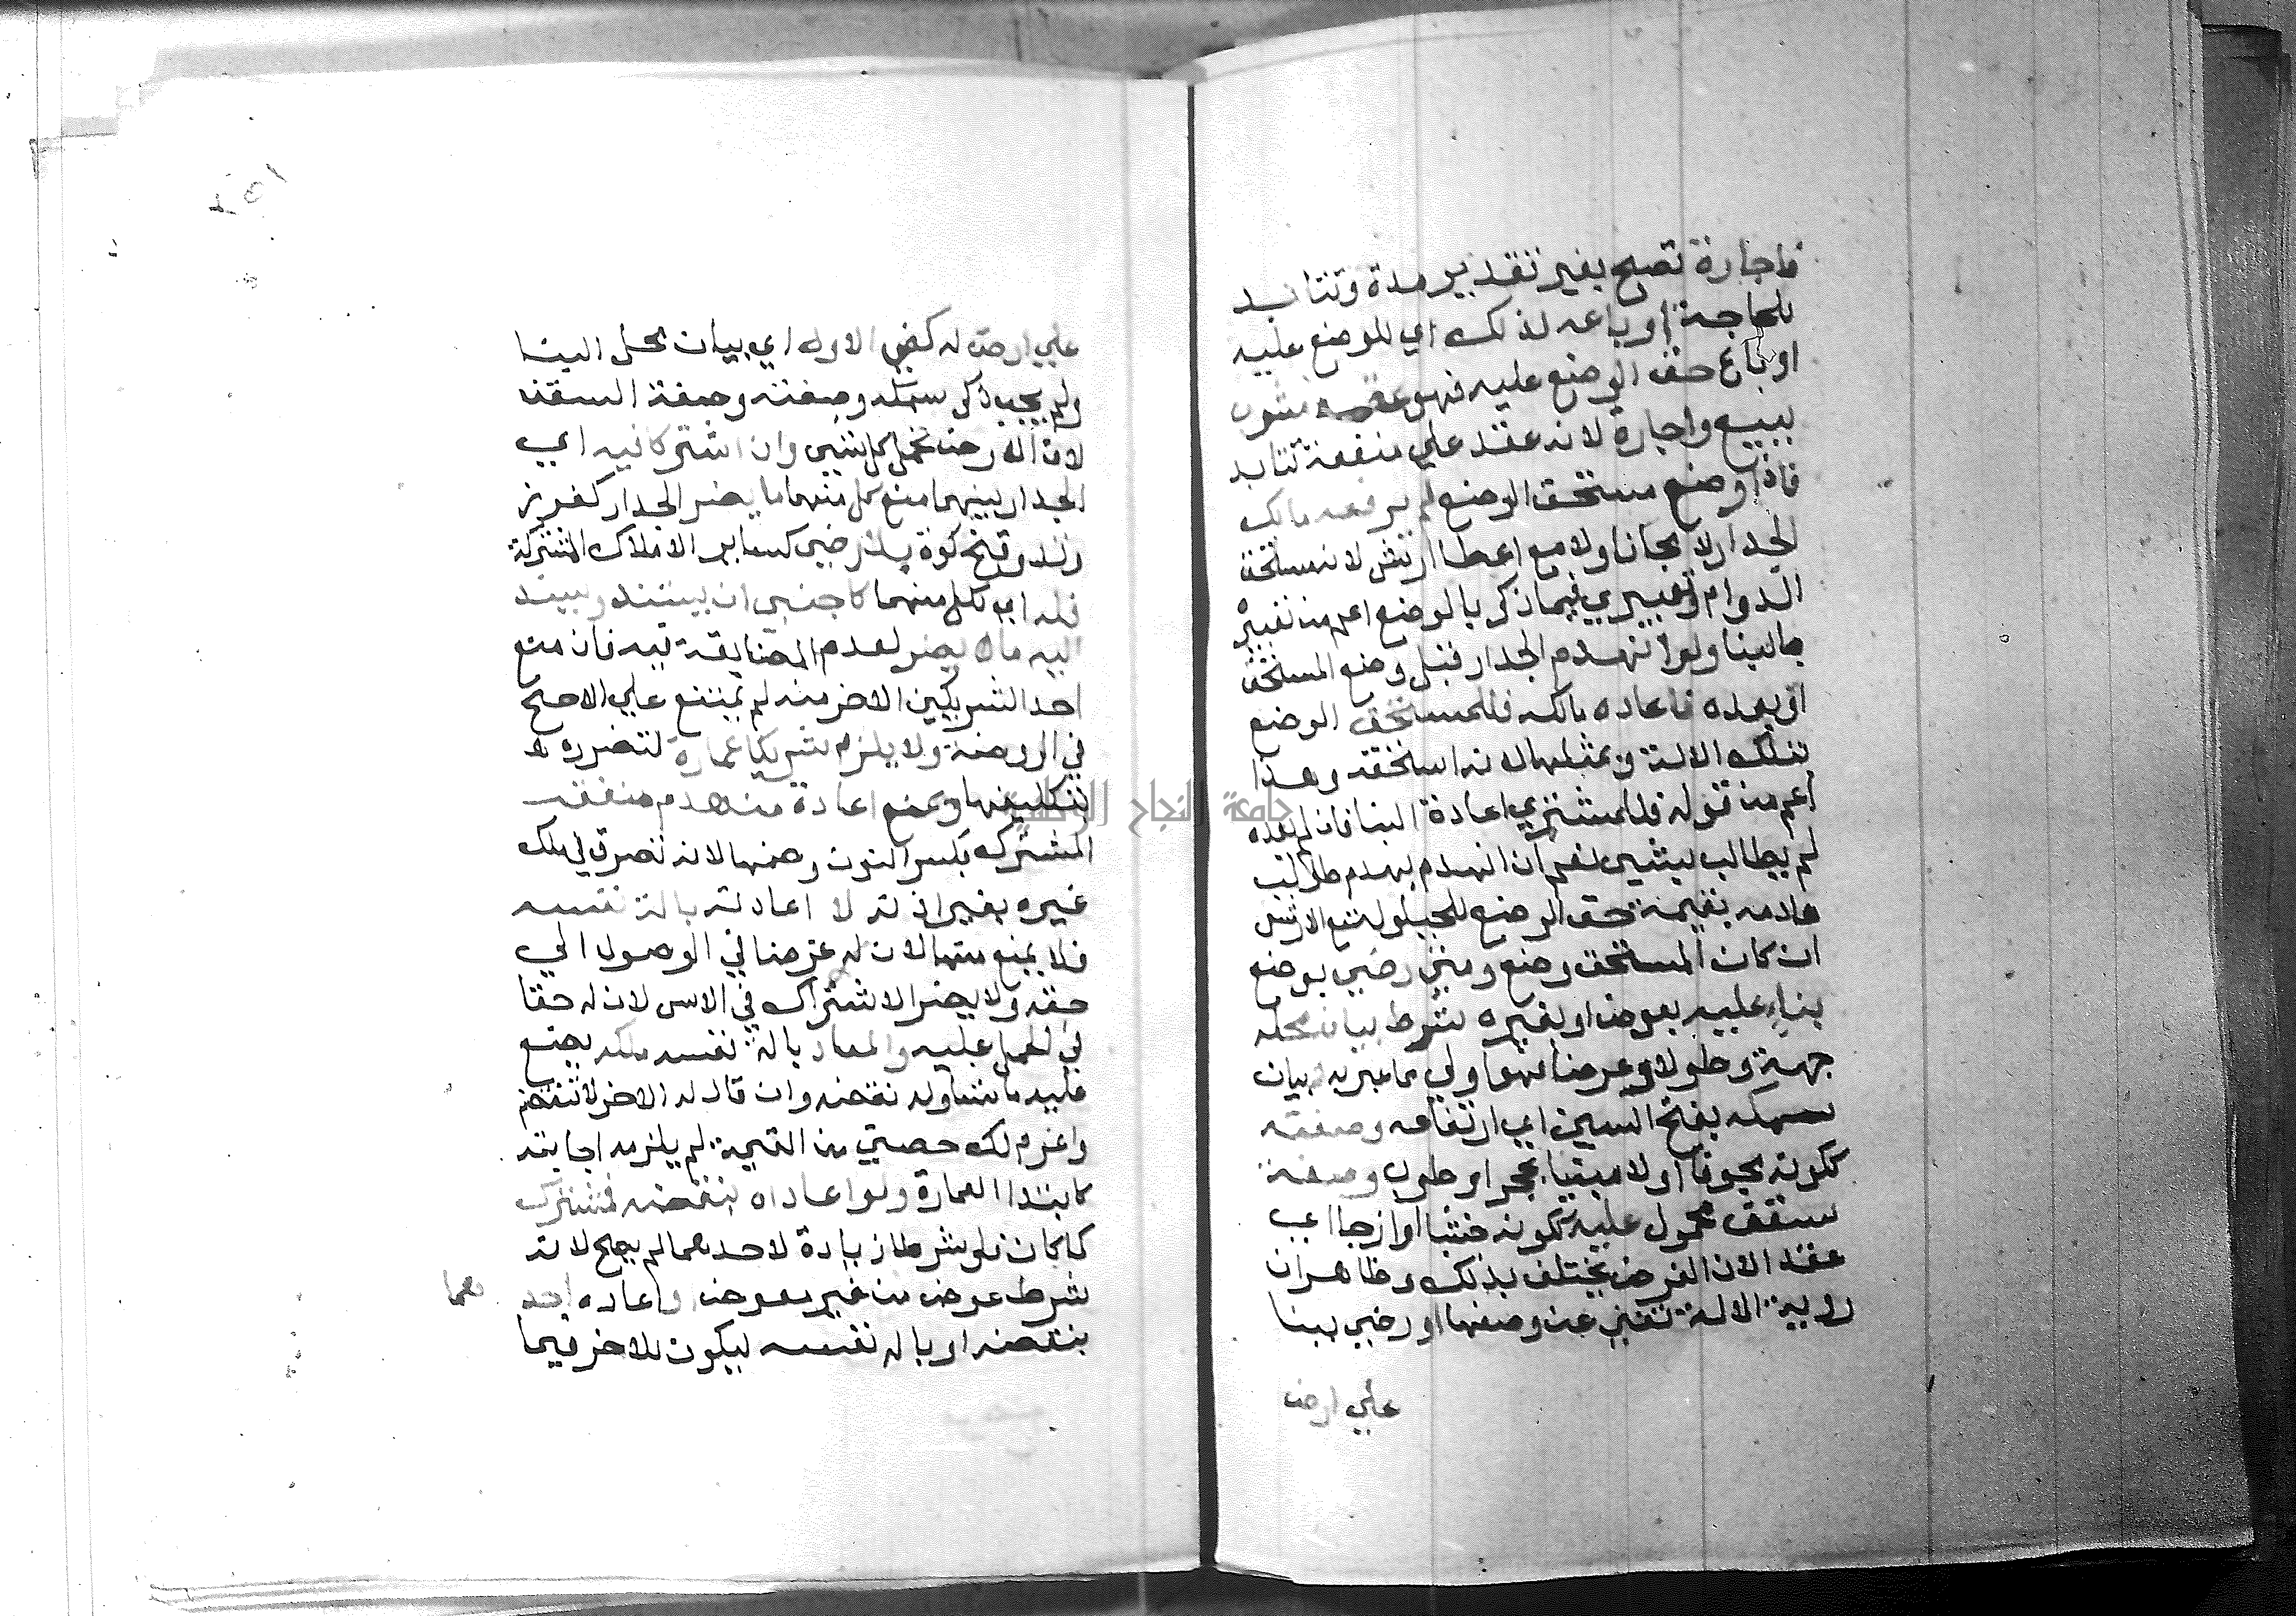 فاجارة تصح بغير تقدير مدة وتتابد
للحاجة او باعه لذلك اي للوضع عليه
او باع حق الوضع عليه فهو عقد مشوب
ببيع واجارة لانه عقد علي منفعة تتابد
فاذا وضع مستحق الوضع لم يرفعه مالك
الجدار لا مجانا ولا مع اعطا ارش لانه مستحق
الدوام وتعبيري فيما ذكر بالوضع اعم من تعبيره
بالبنا ولو انهدم الجدار قبل وضع المستحق
او بعده فاعاده مالكه فللمستحق الوضع
بتلك الالة وبمثلها لانه استحقه وهذا
اعم من قوله فللمشتري اعادة البنا فان لم يعده
لم يطالب بشي نعم ان انهدم بهدم طالب
هادمه بقيمة حق الوضع للحيلولة مع الارش
ان كان المستحق وضع ومتي رضي بوضع
بناء عليه بعوض او بغيره شرط بيان محله
جهة وطولا وعرضا فهو اولي مما عبر به وبيان
سمكه بفتح السين اي ارتفاعه وصفته
ككونه مجوفا او لا مبنيا بحجر او طوب وصفة
سقف محمول عليه ككونه خشبا او ازجا اي
عقدا لان الغرض يختلف بذلك وظاهر ان
روية الالة تغني عن وصفها او رضي ببنا
علي ارض
علي ارض له كفي الاول اي بيان محل البنا
ولم يجب ذكر سمكه وصفته وصفة السقف
لان الارض تحمل كل شي وان اشتركا فيه اي
الجدار بينهما منع كل منهما ما يضر الجدار كغرز
وتد وفتح كوة بلا رضي كساير الاملاك المشتركة
فله اي لكل منهما كاجنبي ان يستند ويسند
اليه مالا يضر لعدم المضايقة فيه فان منع
احد الشريكين الاخر منه لم يمتنع علي الاصح
في الروضة ولا يلزم شريكا عمارة لتضرره
بتكليفها ويمنع اعادة منهدم بنقضه
المشترك بكسر النون وضمها لانه تصرف في ملك
غيره بغير اذنه لا اعادته بالة نفسه
فلا يمنع منها لان له غرضا في الوصول الي
حقه ولا يضر الاشتراك في الاس لان له حقا
في الحمل عليه والمعاد بالة نفسه ملكه يضع
عليه ما شا وله نقضه وان قال له الاخر لا تنقضه
واغرم لك حصتي من القيمة لم يلزمه اجابته
كابتدا العمارة ولو اعاداه بنقضه فمشترك
كما كان فلو شرطا زيادة لاحدهما لم يصح لانه
شرط عوض من غير معوض او اعاده احد هما
بنقضه او بالة نفسه ليكون للاخر فيما
جامعة النجاح الوطنية